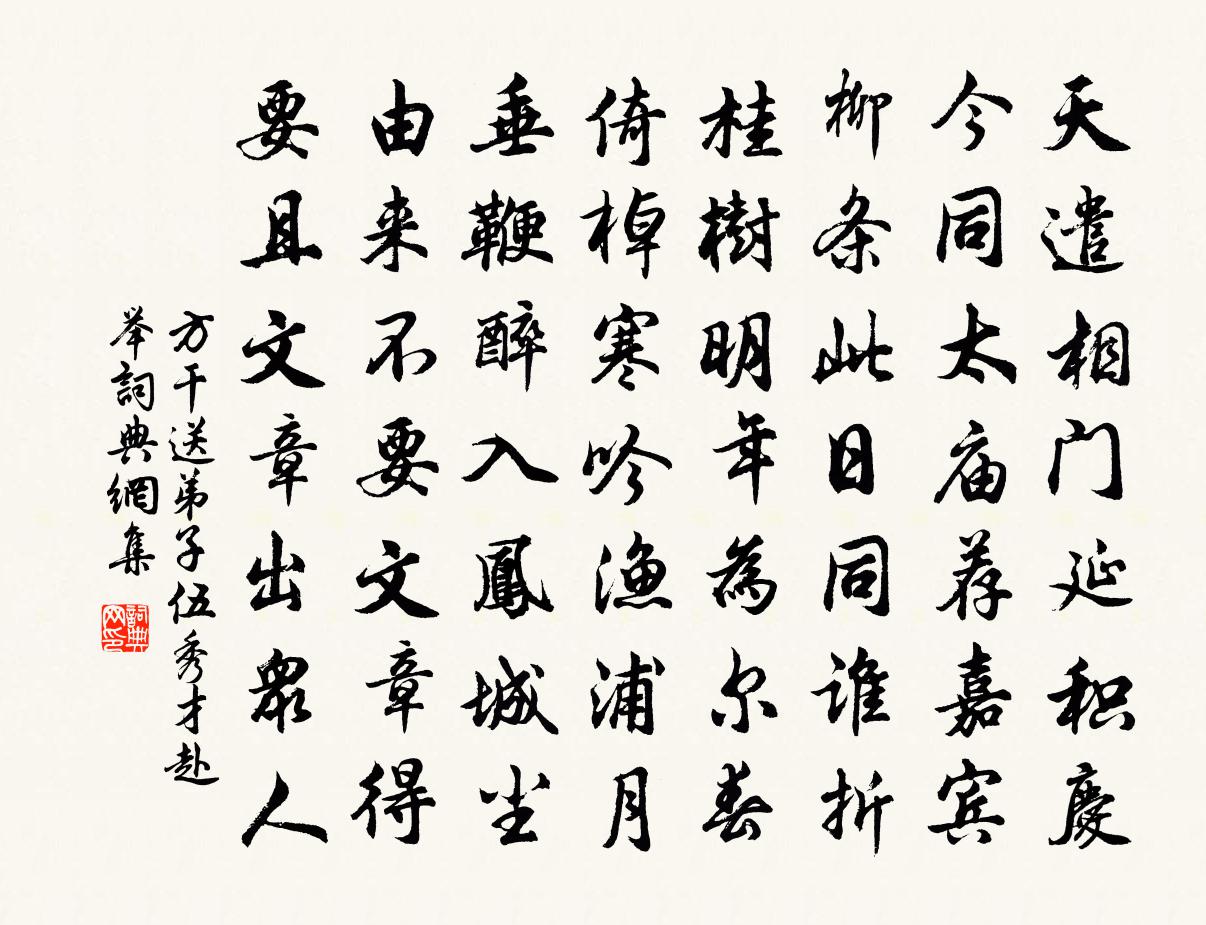 天遣相门延积慶
今同太庙荐嘉宾
柳条此日同谁折
桂樹明年為尔春
倚棹寒吟漁浦月
垂鞭醉入鳳城尘
由来不要文章得
要且文章出眾人
方干送弟子伍秀才赴
举詞典網集
詞典网印